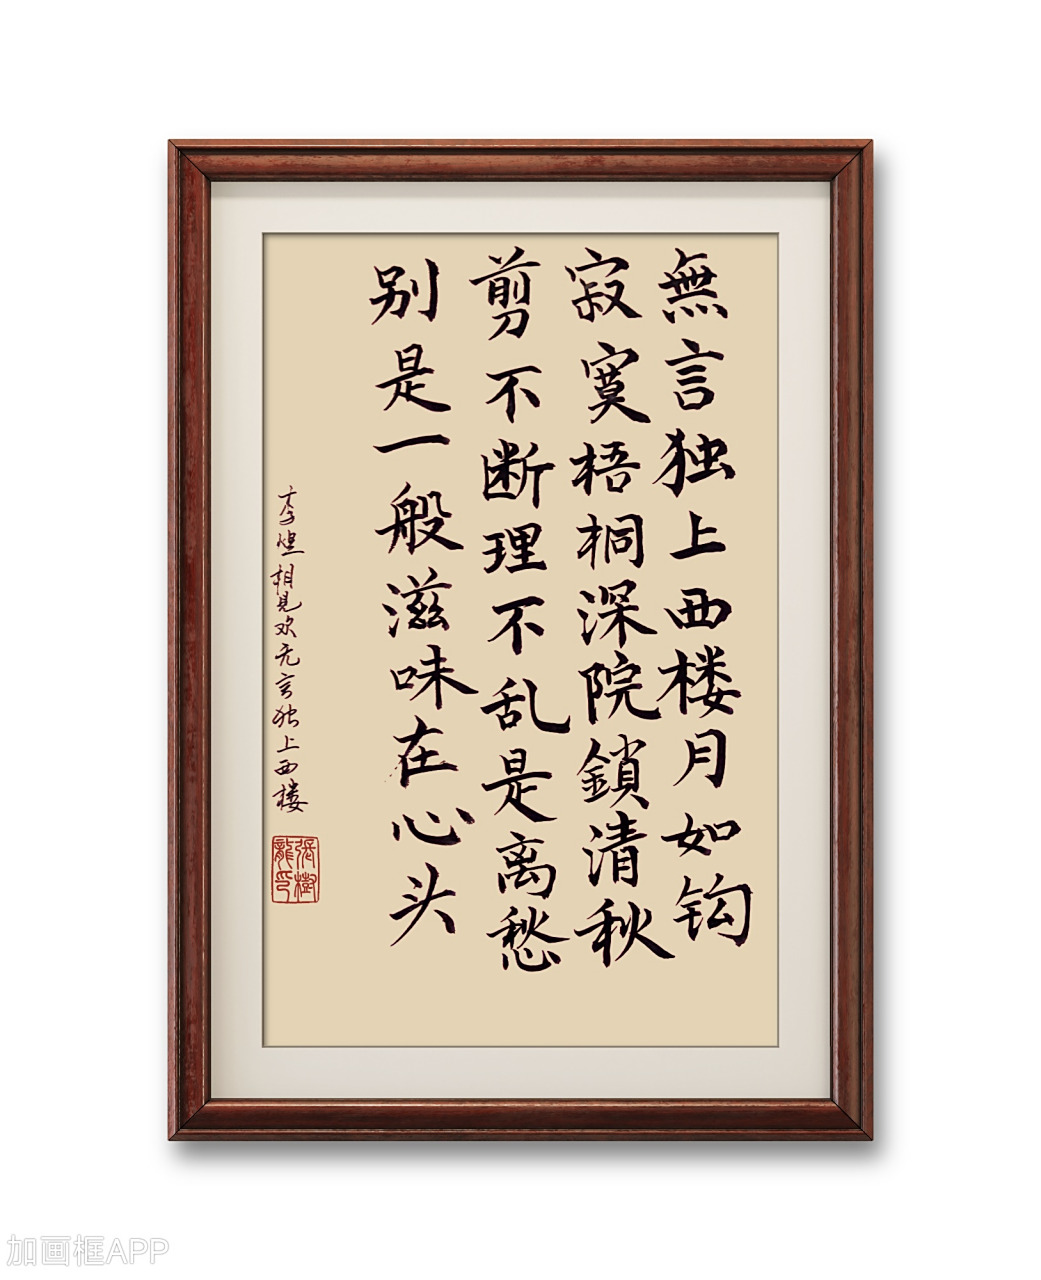 無言独上西楼月如钩
寂寞梧桐深院鎖清秋
剪不断理不乱是离愁
别是一般滋味在心头
李煜相见欢无言独上西楼
張樹龍印
加画框APP